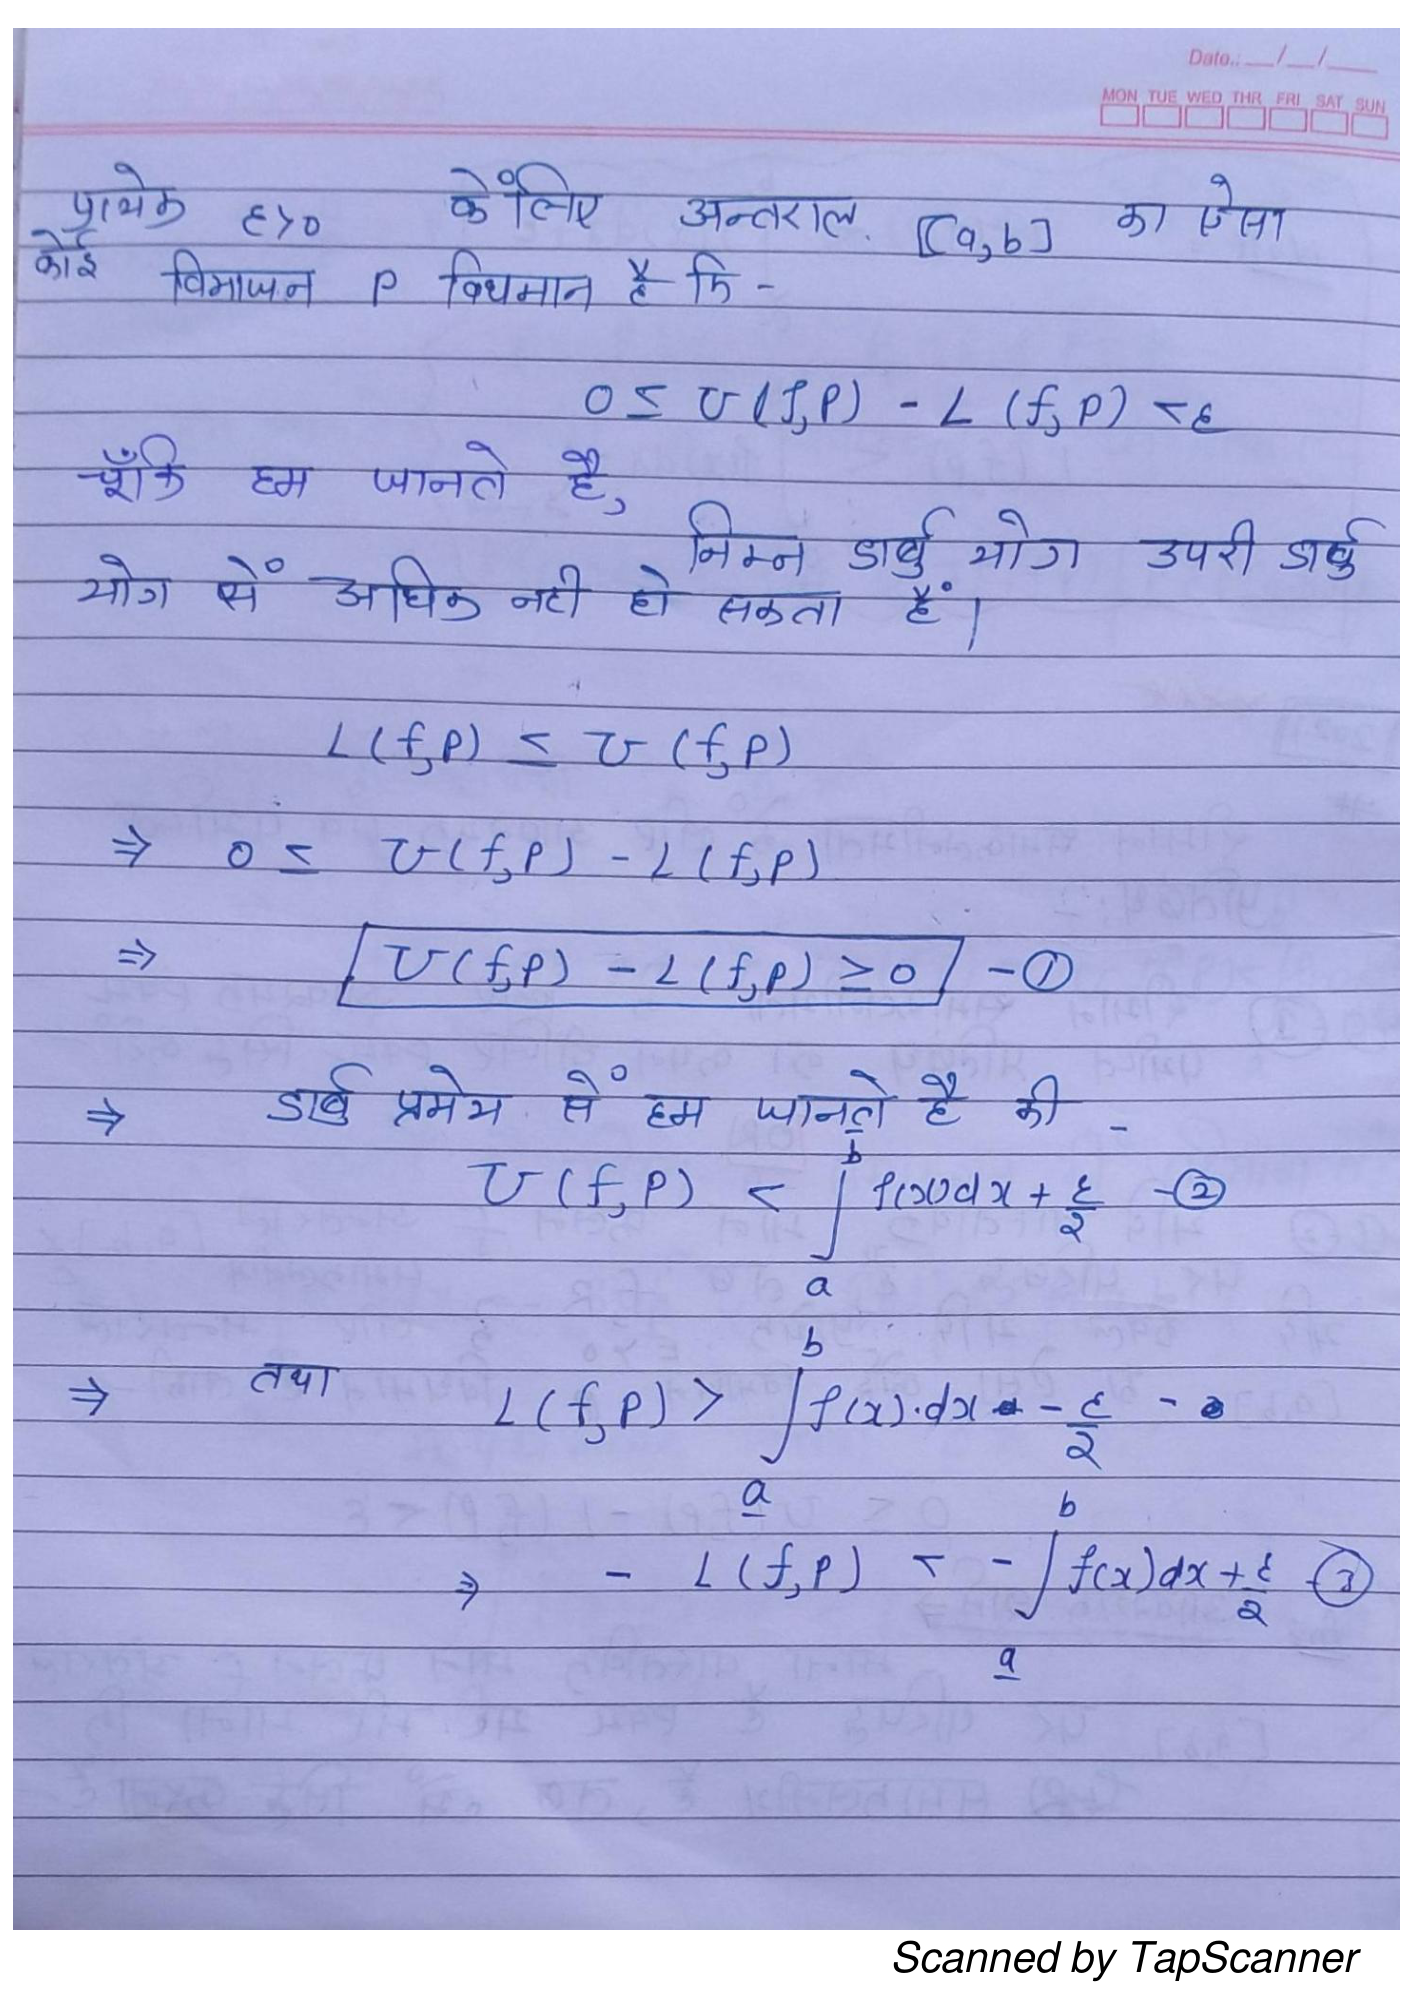 Date.: __/__/___
MON TUE WED THR FRI SAT SUN
प्रत्येक ε>0 केंलिए अन्तराल. [a,b] का ऐसा
कोई विभाजन P विधमान है कि -
0 ≤ U(f,P) - L (f,P) <ε
चूँकि हम जानते है,
निम्न डार्बु योग उपरी डार्बु
योग सें अधिक नही हो सकता हैं।
L(f,P) ≤ U (f,P)
⇒ 0 ≤ U(f,P) - L(f,P)
⇒ U(f,P) - L(f,P) ≥ 0 - ①
⇒ डार्बु प्रमेय सें हम जानते है की -
U(f,P) < ∫_a^b f(x)dx + ε/2 - ②
⇒ तथा L(f,P) > ∫_a^b f(x).dx - ε/2 -
⇒ - L(f,P) < - ∫_a^b f(x)dx + ε/2 - ③
Scanned by TapScanner